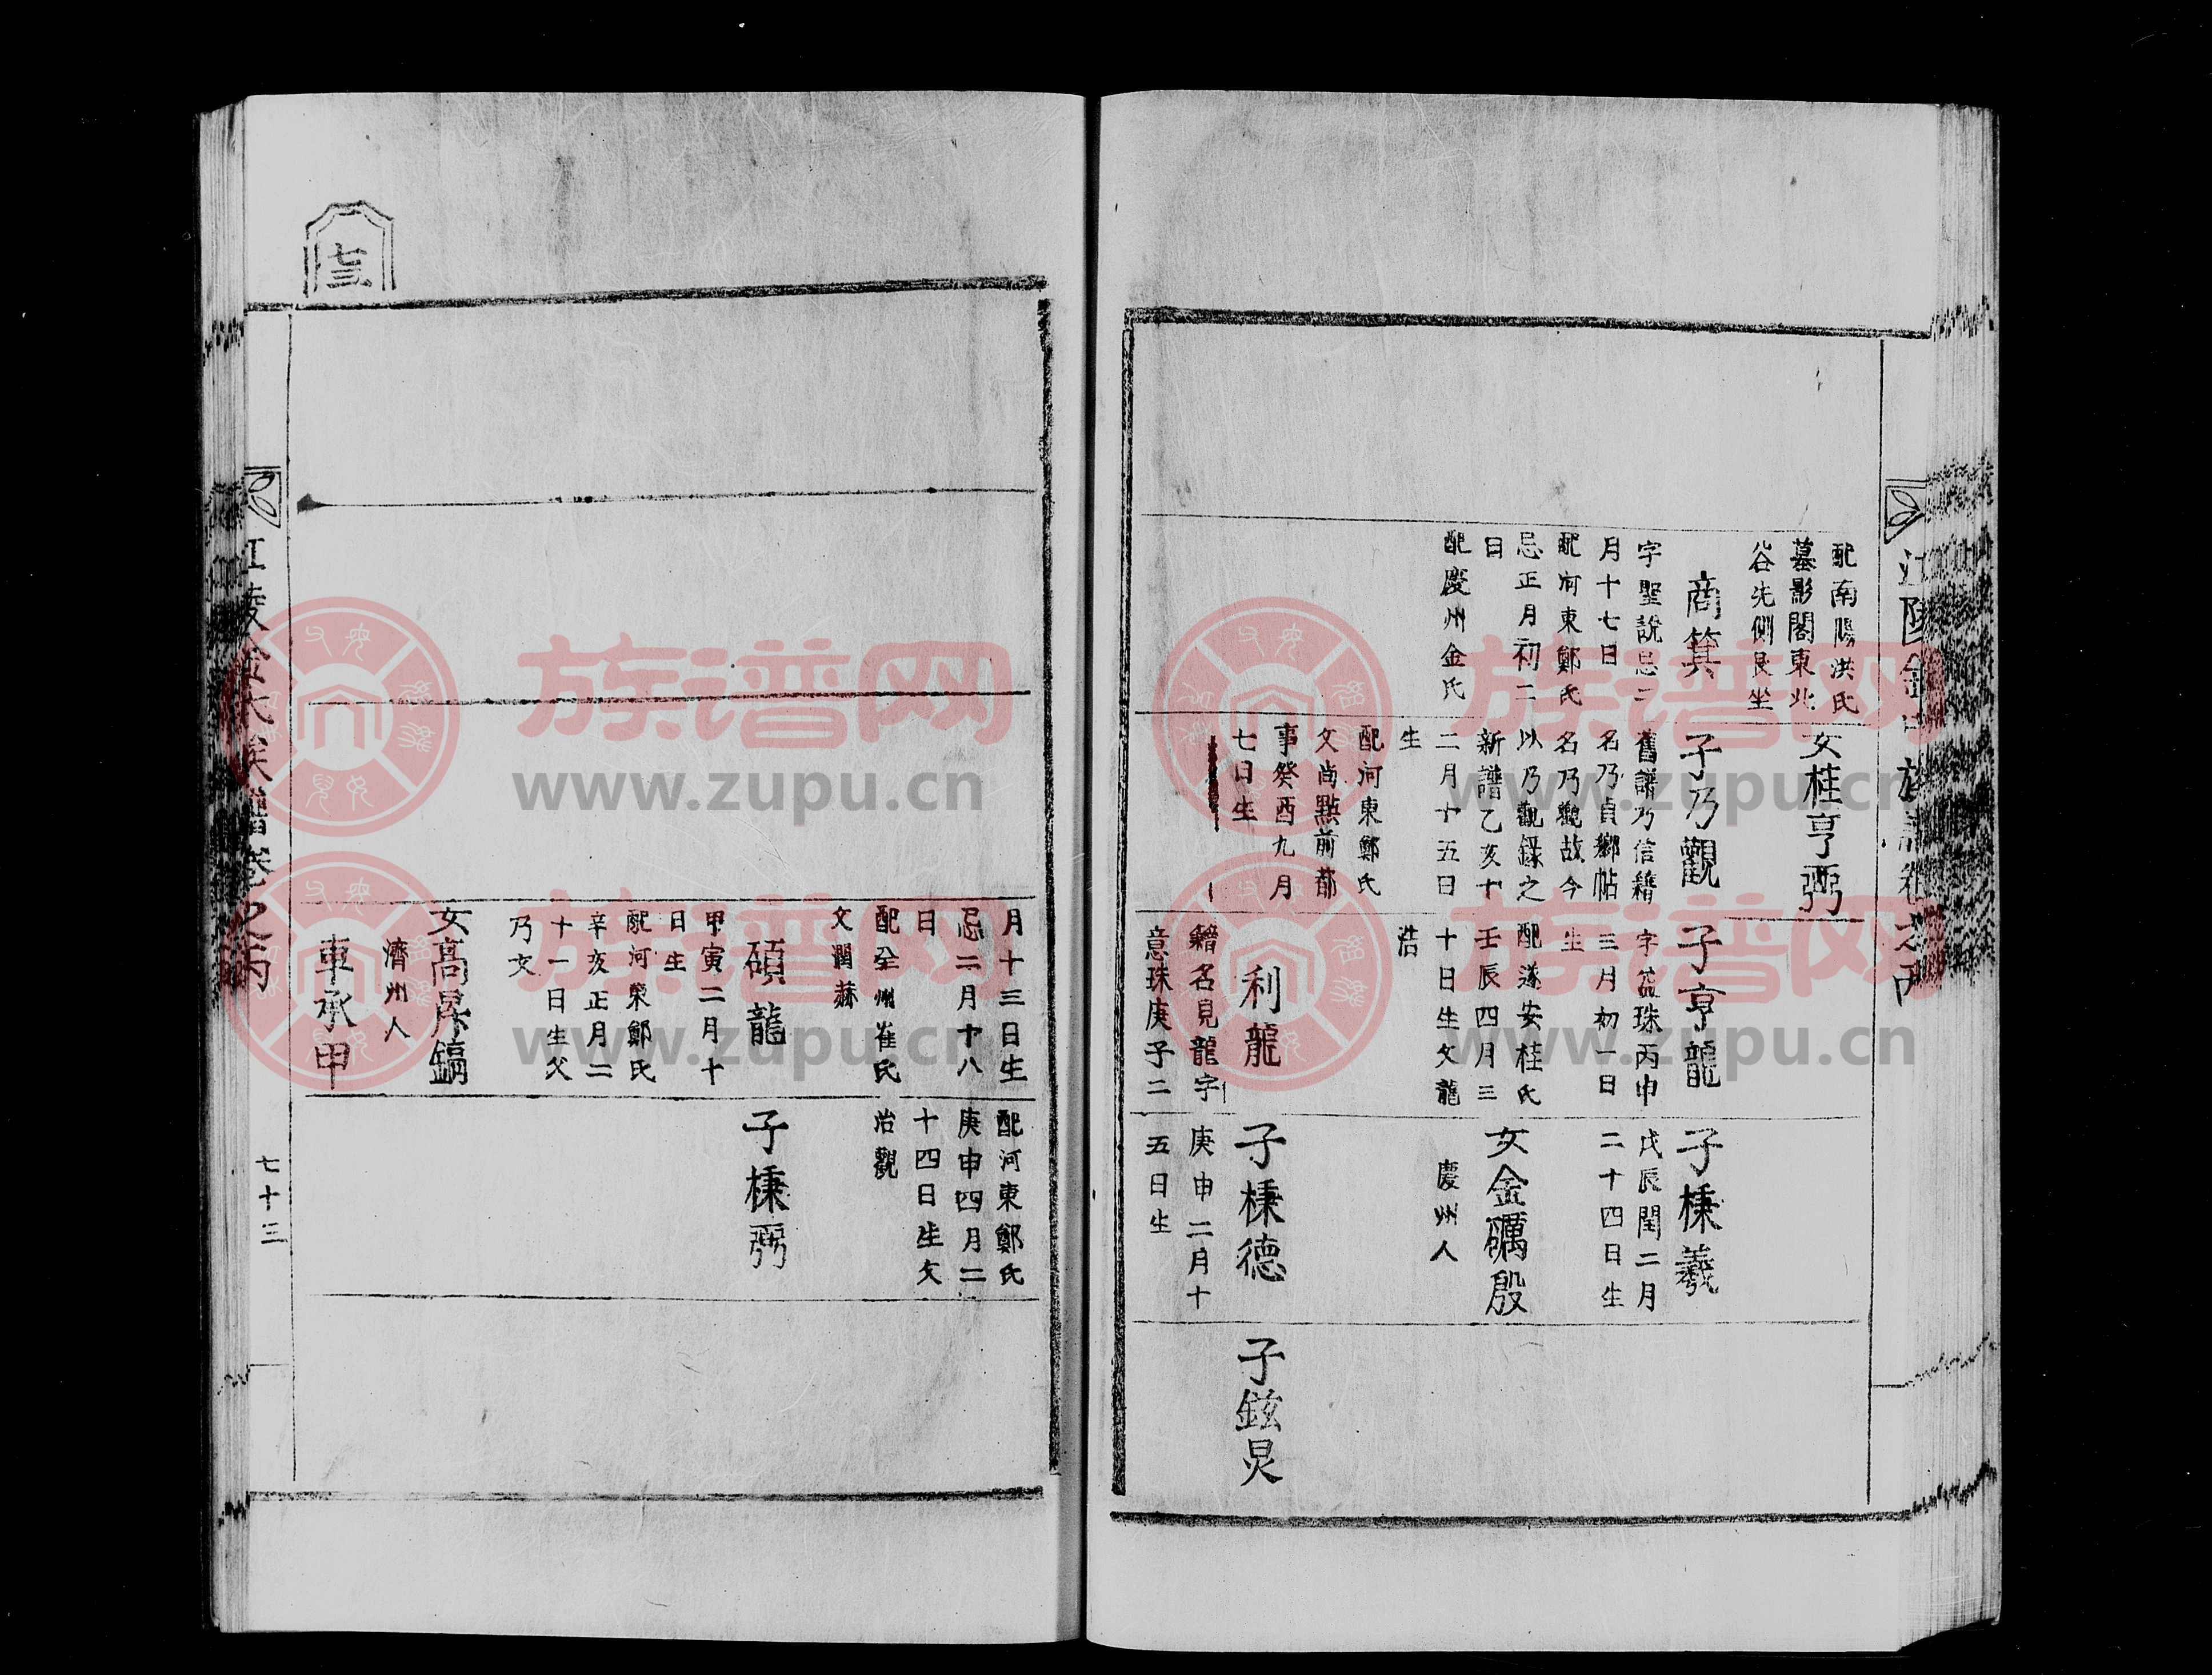 江陵金氏族譜卷之丙
配南陽洪氏
墓影閣東北
谷先側艮坐
商箕
字聖說忌二
月十七日
配河東鄭氏
忌正月初二
日
配慶州金氏
女桂亨弼
子乃觀
舊譜乃信籍
名乃貞鄉帖
名乃觀故今
以乃觀錄之
新譜乙亥十
二月十五日
生
配河東鄭氏
父尚點前都
事癸酉九月
七日生
子亨龍
字益珠丙申
三月初一日
生
配遂安桂氏
壬辰四月三
十日生父龍
浩
利龍
籍名見龍字
意珠庚子二
子㯳羲
戊辰閏二月
二十四日生
女金礪殷
慶州人
子㯳德
庚申二月十
五日生
子鉉炅
月十三日生
忌二月十八
日
配全州崔氏
父潤赫
碩龍
甲寅二月十
日生
配河東鄭氏
辛亥正月二
十一日生父
乃文
女高昇鎬
濟州人
車承甲
配河東鄭氏
庚申四月二
十四日生父
治觀
子㯳弼
七三
江陵金氏族譜卷之丙
七十三
族谱网
www.zupu.cn
族谱网
www.zupu.cn
族谱网
www.zupu.cn
族谱网
www.zupu.cn